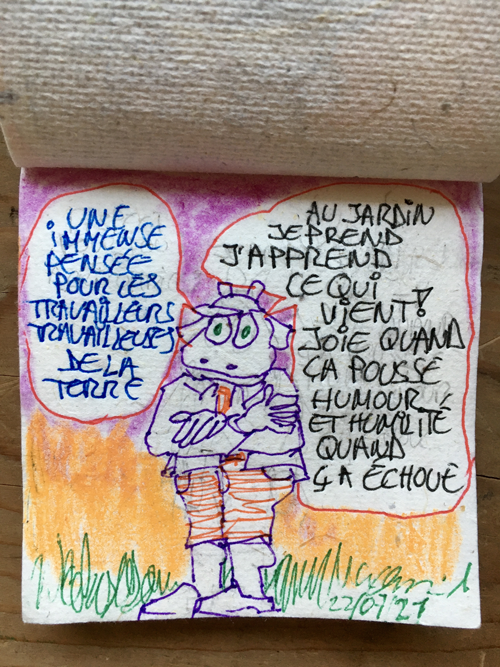 UNE
IMMENSE
PENSÉE
POUR LES
TRAVAILLEURS
TRAVAILLEUSES
DE LA
TERRE
AU JARDIN
JE PREND
J'APPREND
CE QUI
VIENT!
JOIE QUAND
ÇA POUSSE
HUMOUR
ET HUMILITÉ
QUAND
ÇA ÉCHOUE
22/07/21